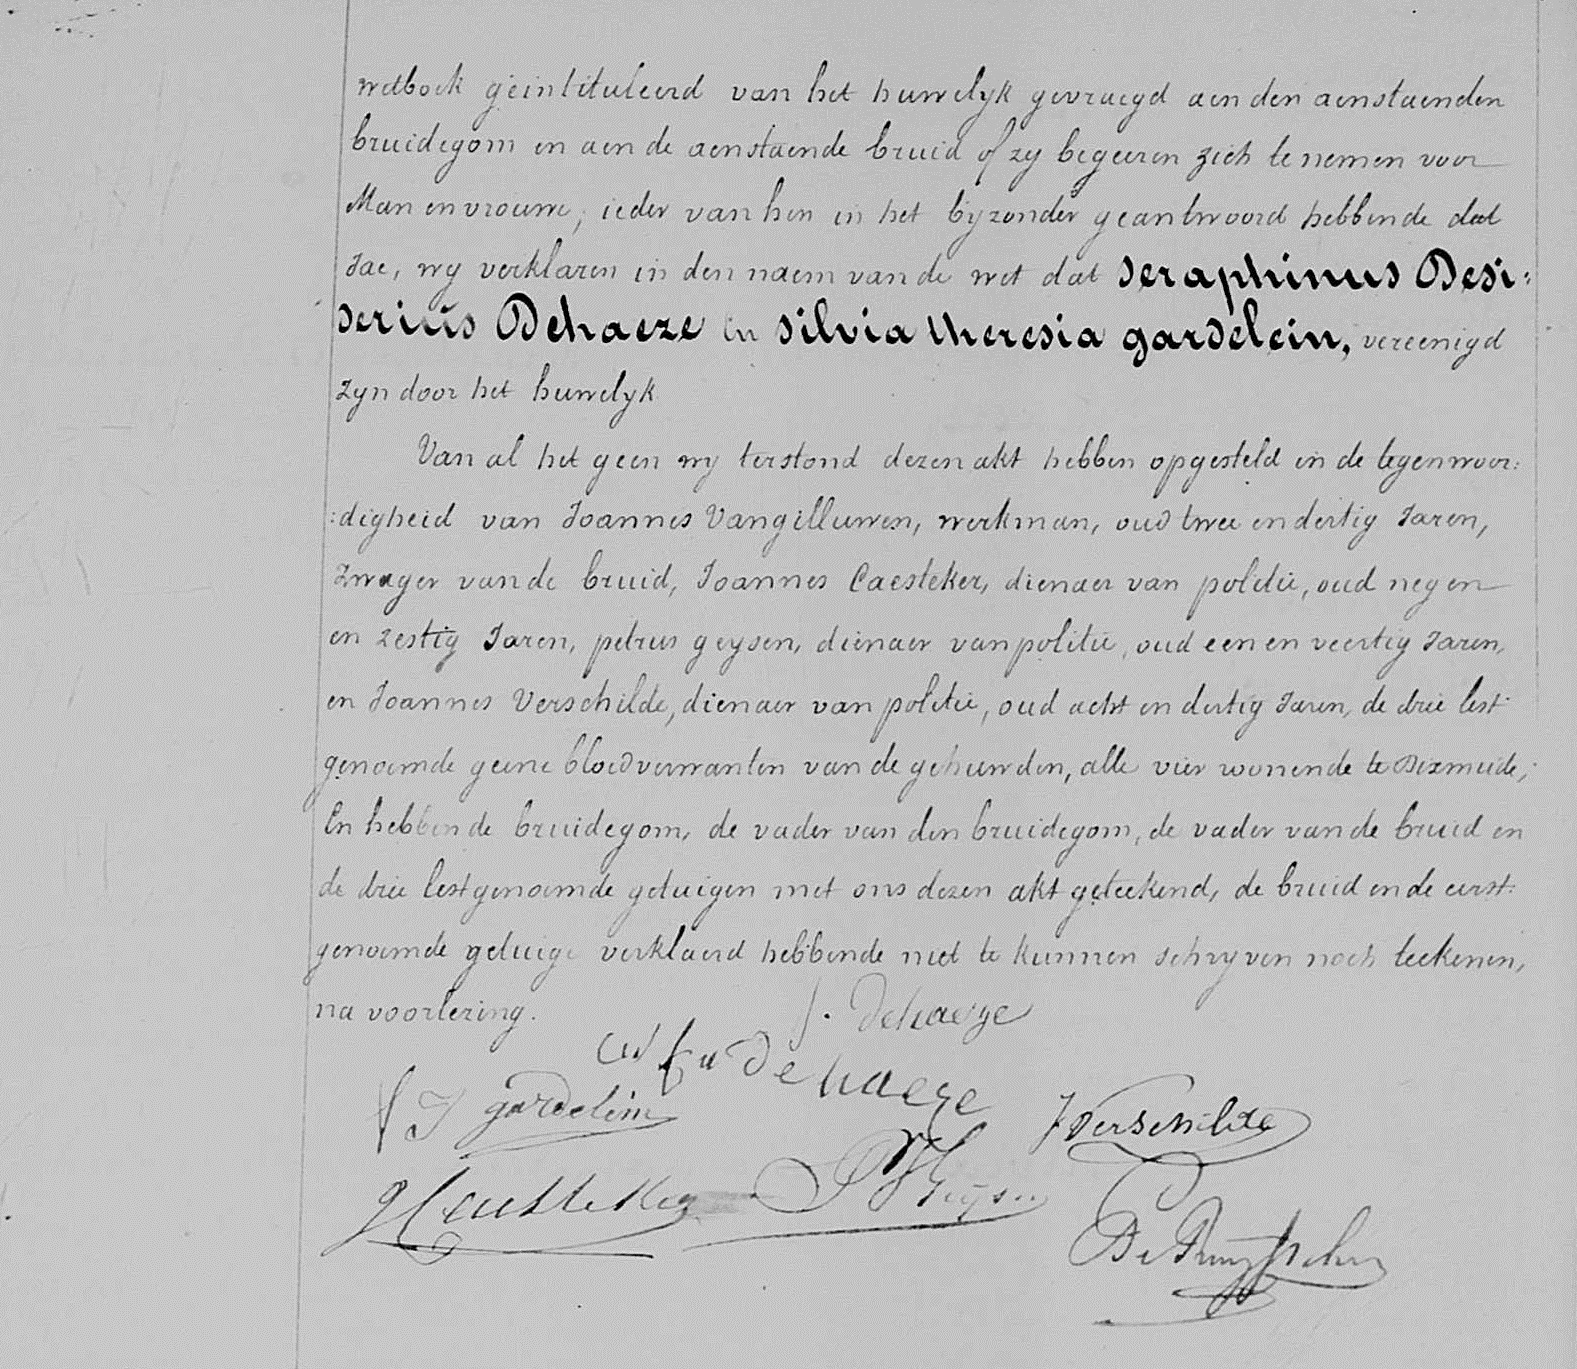 wetboek geintituleerd van het huwelyk gevraegd aen den aenstaenden
bruidegom en aen de aenstaende bruid of zy begeeren zich te nemen voor
Man en vrouwe, ieder van hen in het byzonder geantwoord hebbende dat
Jae, wy verklaren in den naem van de wet dat Seraphinus Desi:
derius Dehaeze En Silvia theresia gardelein, vereenigd
zyn door het huwelyk
Van al het geen wy terstond dezen akt hebben opgesteld in de tegenwoor:
:digheid van Joannes Vangilluwen, werkman, oud twee en dertig Jaren,
zwager van de bruid, Joannes Caesteker, dienaer van politie, oud negen
en zestig Jaren, petrus geysen, dienaer van politie, oud een en veertig Jaren,
en Joannes Verschilde, dienaer van politie, oud acht en dertig Jaren, de drie lest
genoemde geene bloedverwanten van de gehuwden, alle vier wonende te Dixmude;
En hebben de bruidegom, de vader van den bruidegom, de vader van de bruid en
de drie lestgenoemde getuigen met ons dezen akt geteekend, de bruid en de eerst:
genoemde getuige verklaerd hebbende niet te kunnen schryven noch teekenen,
na voorlezing.
S. Dehaeze
Dehaeze
f J gardelein
J Verschilde
J Caesteker
P Geysen